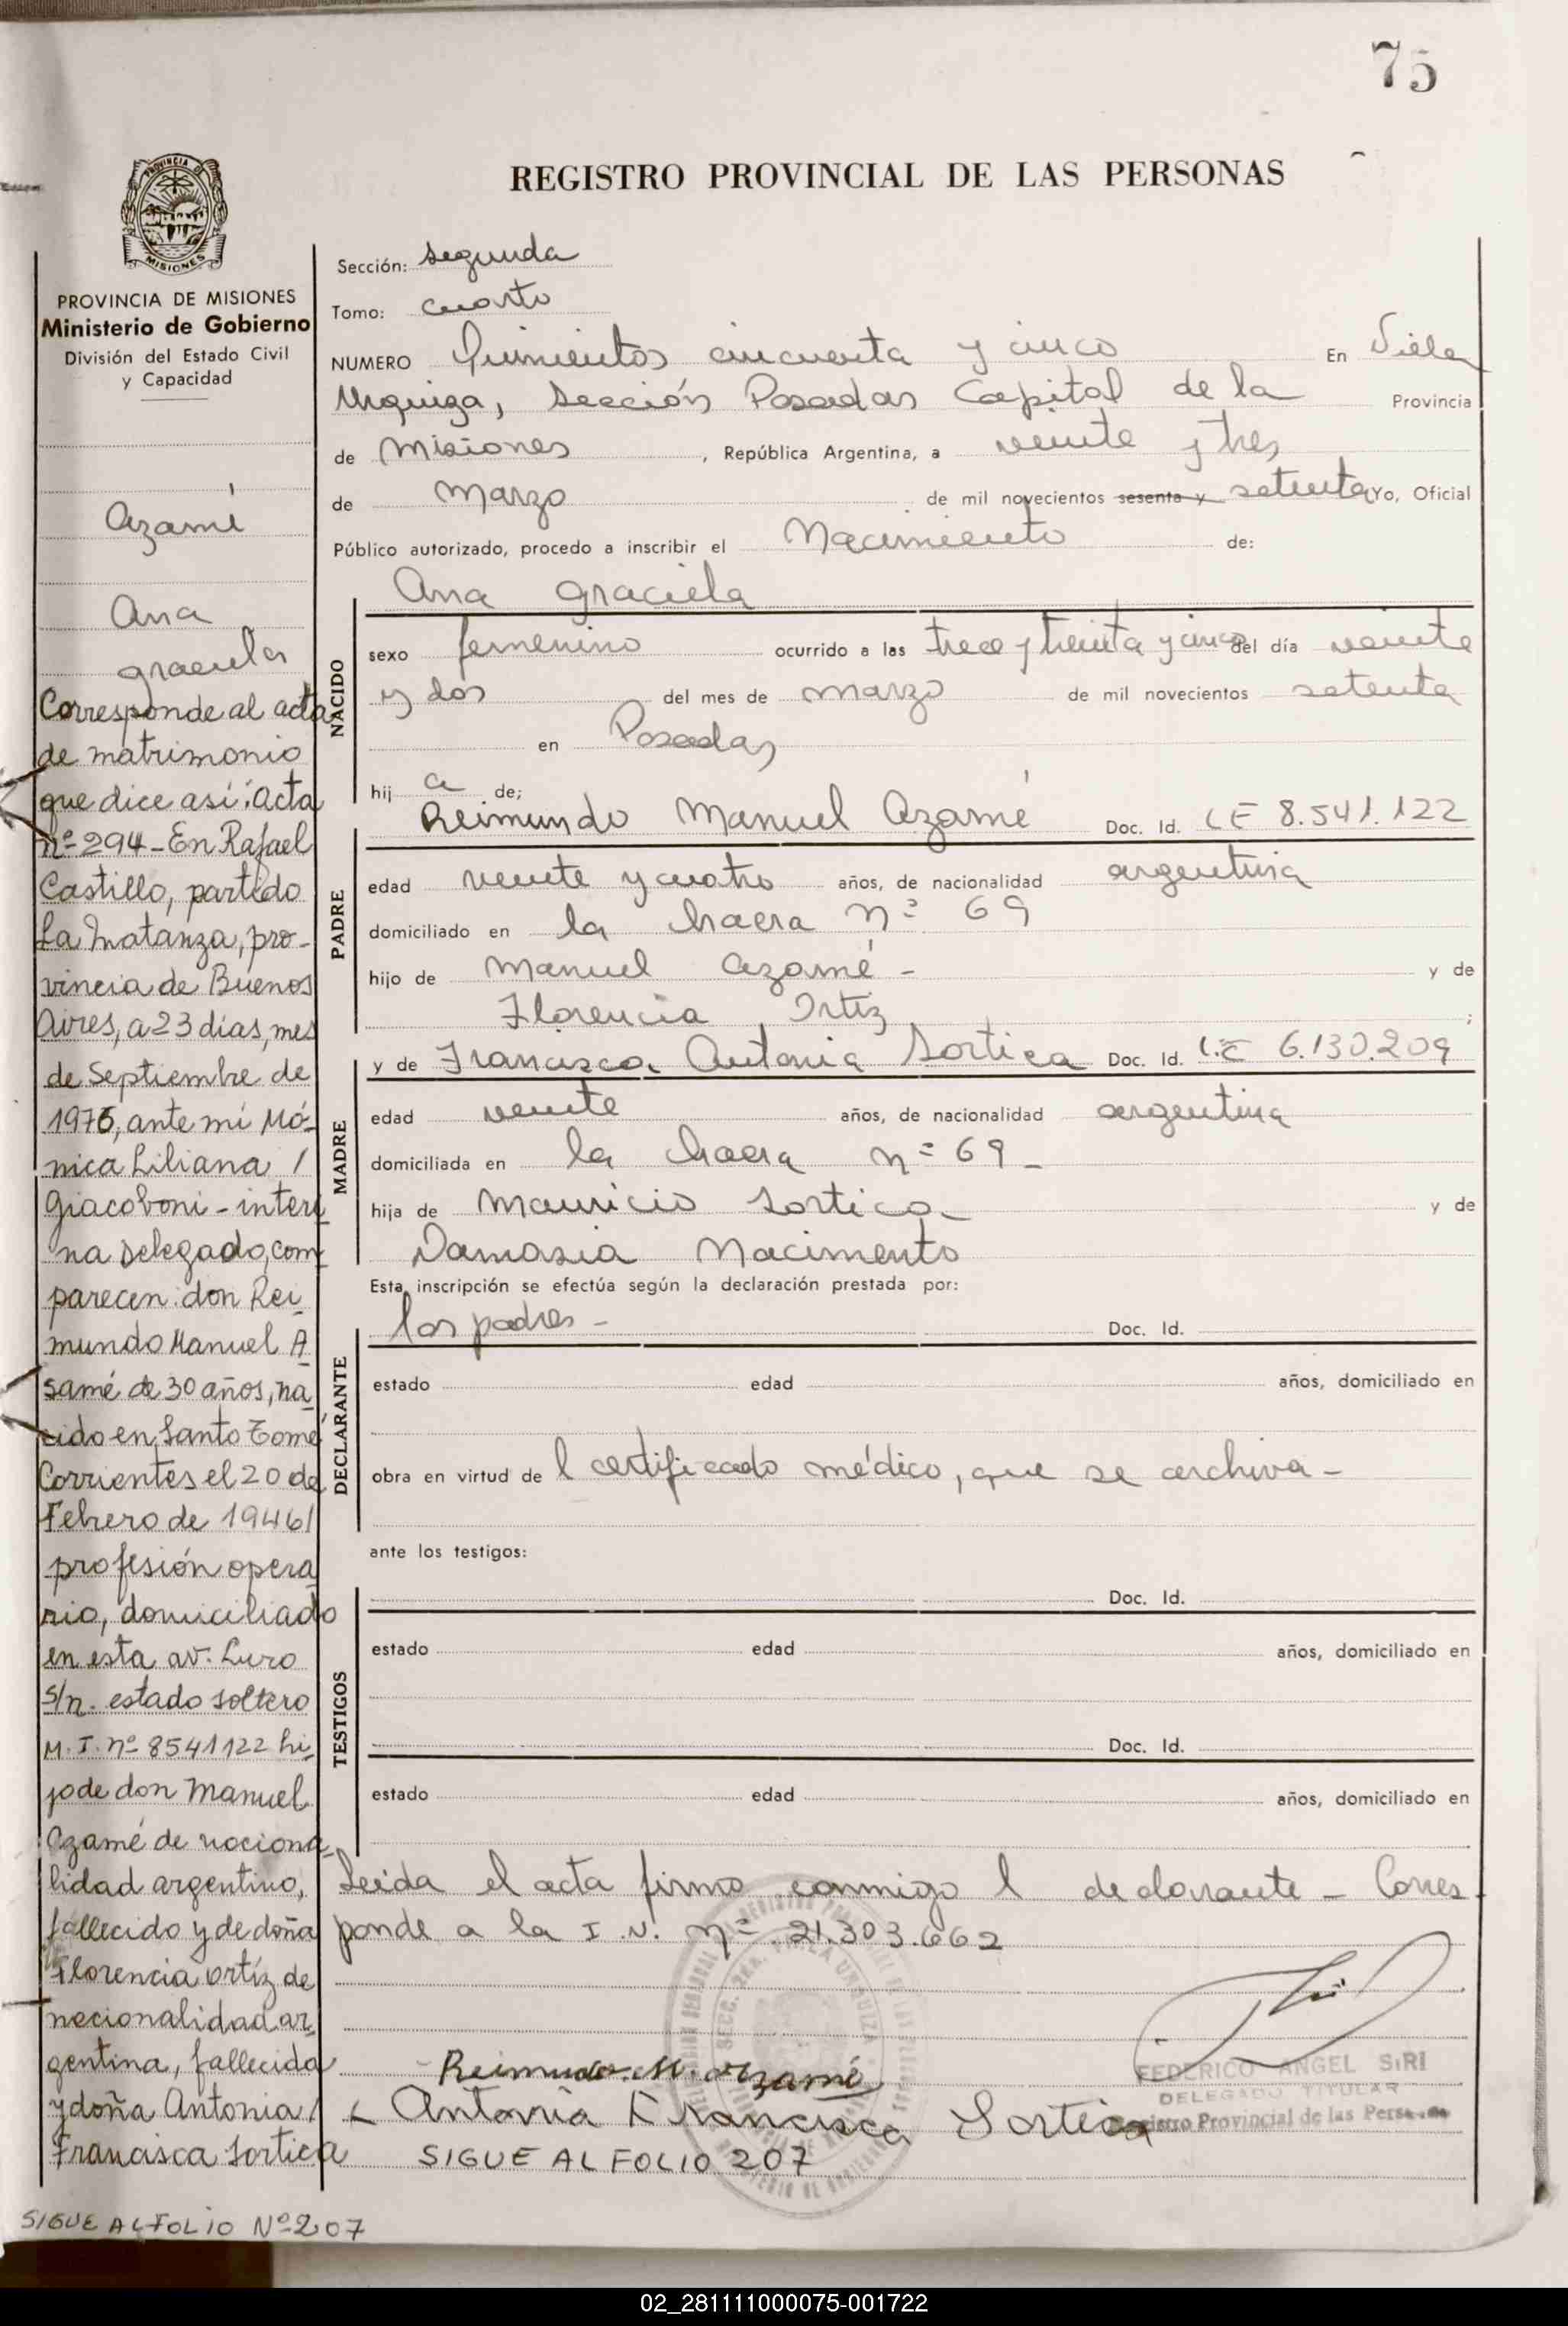 75
REGISTRO PROVINCIAL DE LAS PERSONAS
PROVINCIA DE
MISIONES
PROVINCIA DE MISIONES
Ministerio de Gobierno
División del Estado Civil
y Capacidad
Azamé
Ana
Graciela
Corresponde al acta
de matrimonio
que dice así: Acta
nº 294 - En Rafael
Castillo, partido
La Matanza, pro-
vincia de Buenos
Aires, a 23 días, mes
de Septiembre de
1976, ante mi Mó-
nica Liliana /
Giacoboni - interi
na Delegado, com
parecen: don Rei
mundo Manuel A
samé de 30 años, na
cido en Santo Tomé
Corrientes el 20 de
Febrero de 1946/
profesión opera
rio, domiciliado
en esta av. Luro
S/n. estado soltero
M. I. nº 8541122 hi-
jo de don Manuel
Azamé de naciona
lidad argentino,
fallecido y de doña
Florencia Ortíz de
nacionalidad ar-
gentina, fallecida
y doña Antonia /
Francisca Sortica
SIGUE AL FOLIO Nº 207
Sección: Segunda
Tomo: cuarto
NUMERO Quinientos cincuenta y cinco En Villa
Urquiza, Sección Posadas Capital de la Provincia
de Misiones, República Argentina, a veinte y tres
de Marzo de mil novecientos sesenta y setenta Yo, Oficial
Público autorizado, procedo a inscribir el Nacimiento de:
Ana Graciela
NACIDO
sexo femenino ocurrido a las trece y treinta y cinco del día veinte
y dos del mes de marzo de mil novecientos setenta
en Posadas
hij a de;
Reimundo Manuel Azamé Doc. Id. LE 8.541.122
PADRE
edad veinte y cuatro años, de nacionalidad argentina
domiciliado en la chacra nº 69
hijo de Manuel Azamé - y de
Florencia Ortiz ;
y de Francisca Antonia Sortica Doc. Id. L.C 6.130.209
MADRE
edad veinte años, de nacionalidad argentina
domiciliada en la chacra nº 69 -
hija de Mauricio Sortica y de
Damasia Nacimento
Esta inscripción se efectúa según la declaración prestada por:
los padres - Doc. Id.
DECLARANTE
estado edad años, domiciliado en
obra en virtud de l certificado médico, que se archiva -
ante los testigos:
Doc. Id.
TESTIGOS
estado edad años, domiciliado en
Doc. Id.
estado edad años, domiciliado en
Leida el acta firma conmigo l declarante - Corres-
ponde a la I.N. nº 21.303.662
Reimundo M. Azamé
Antonia Francisca Sortica
FEDERICO ANGEL SIRI
DELEGADO TITULAR
Registro Provincial de las Personas
SIGUE AL FOLIO 207
02_281111000075-001722